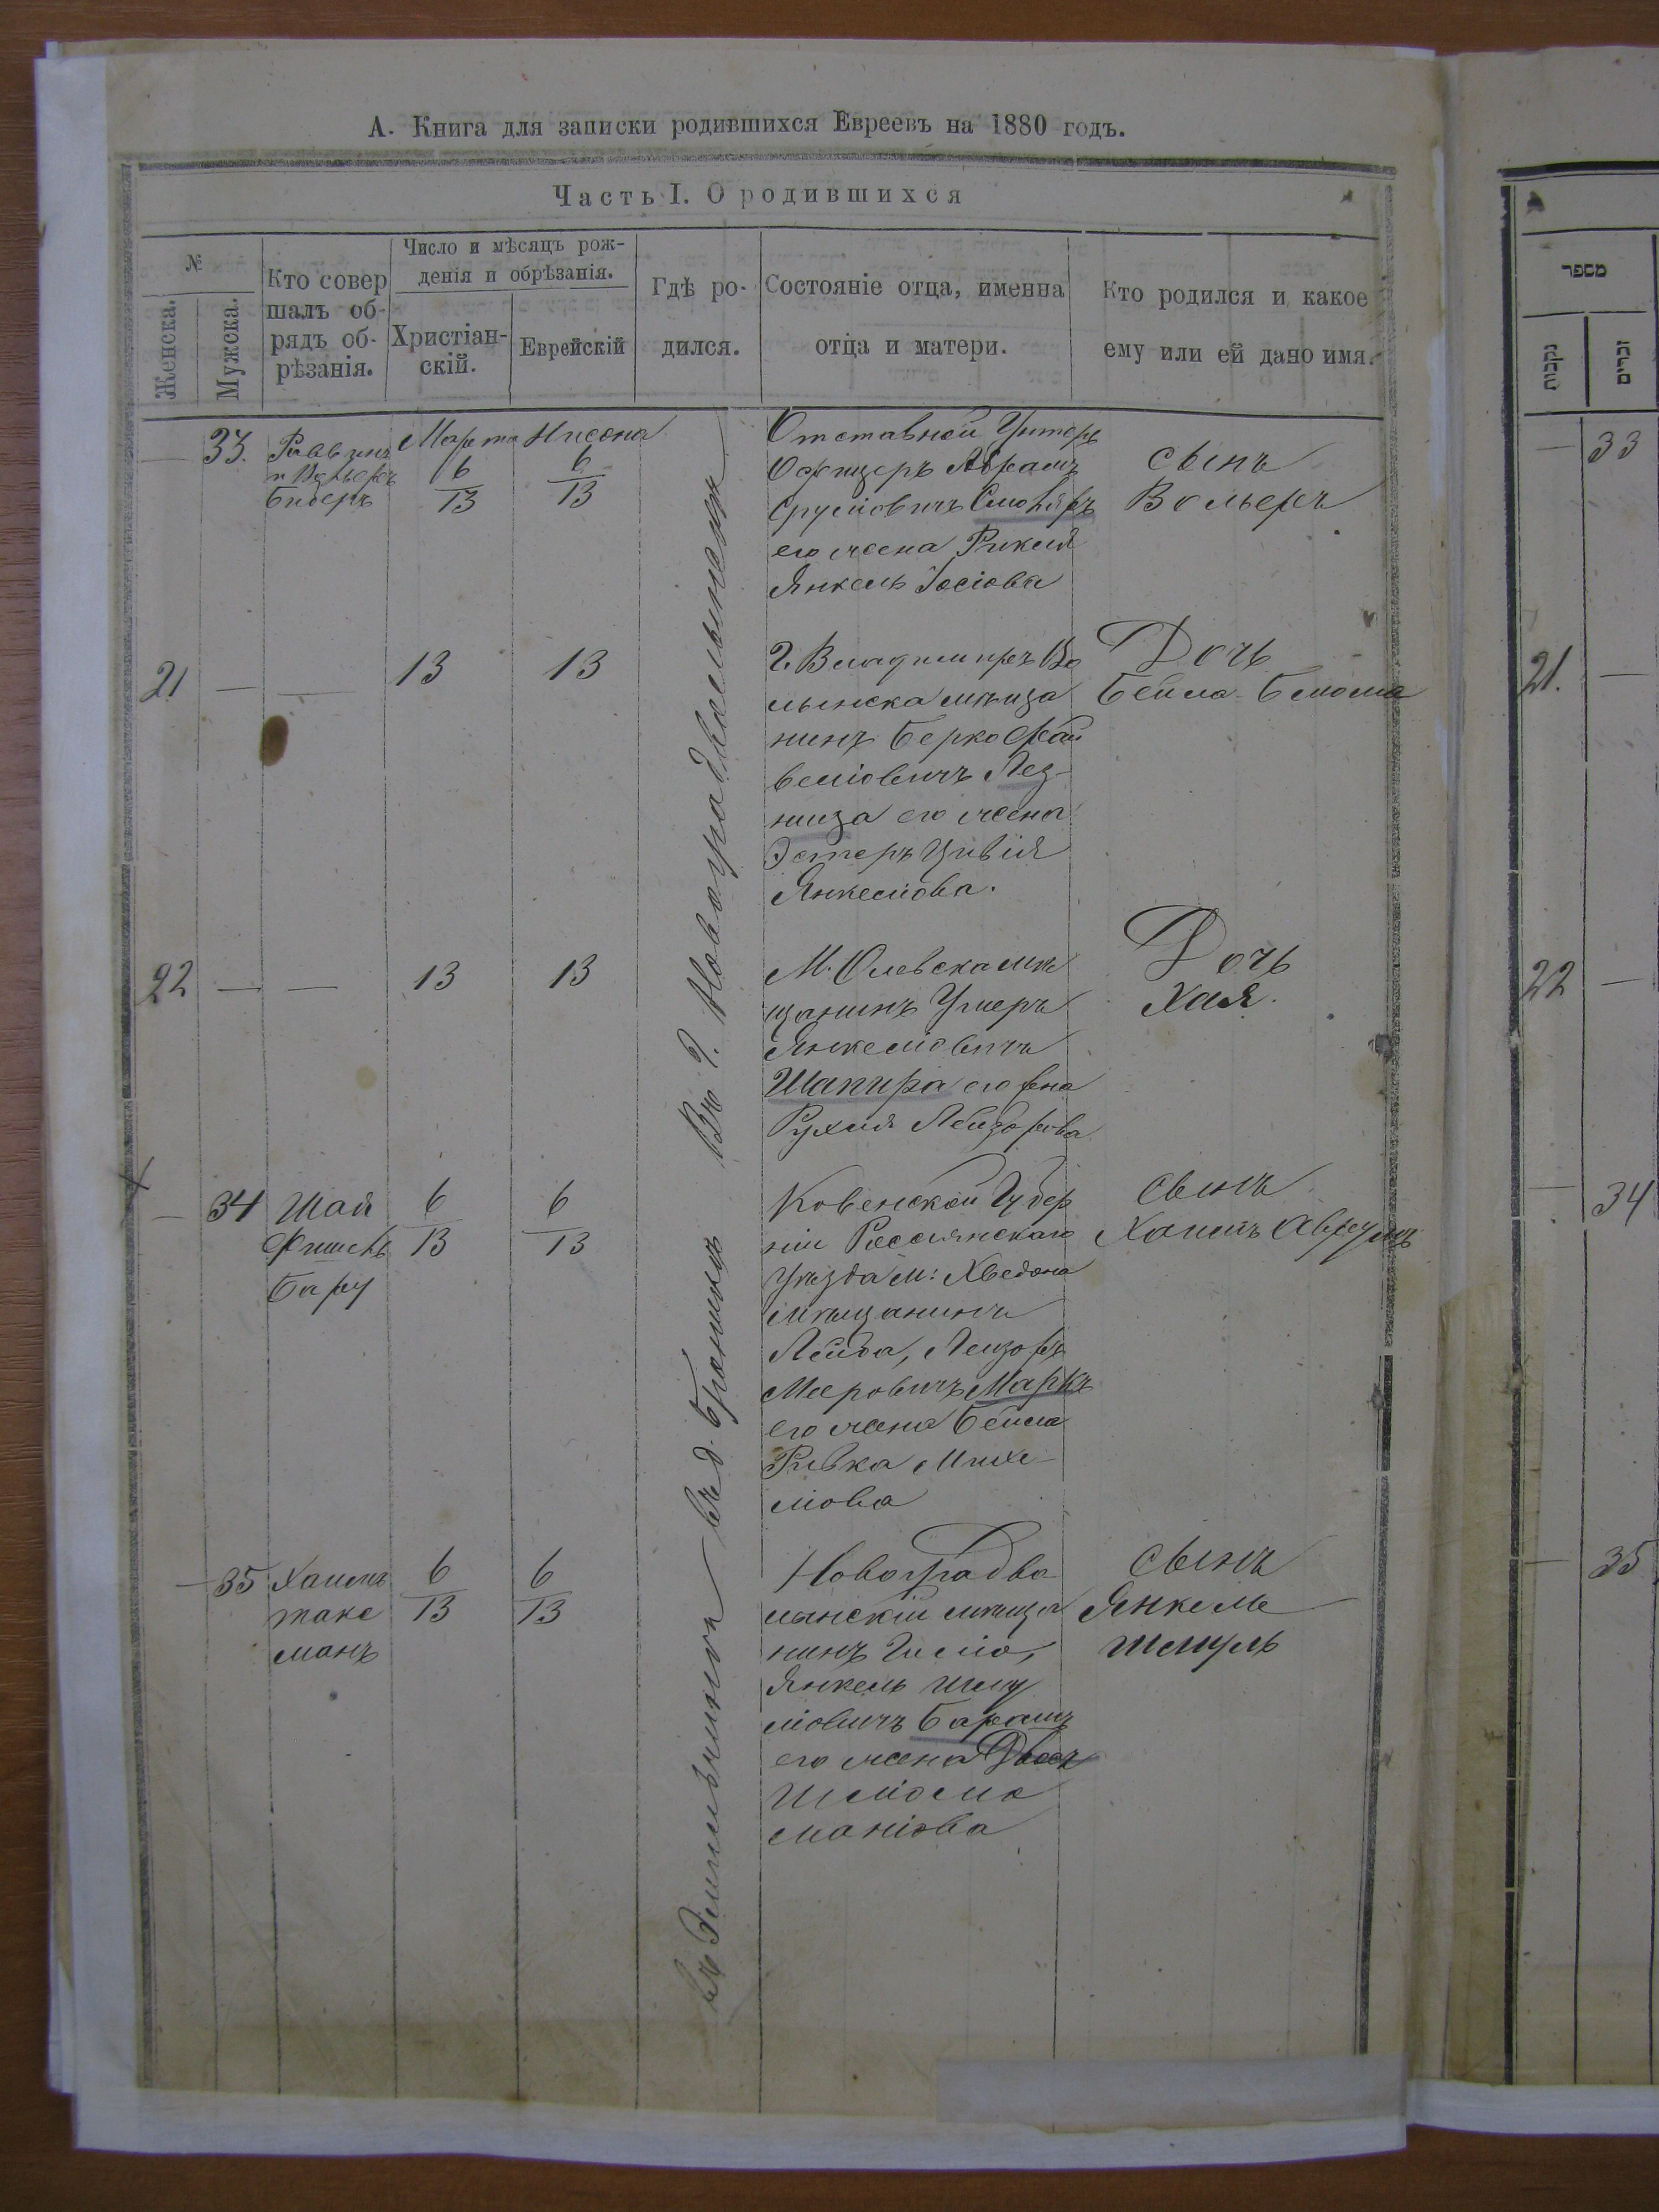 А. Книга для записки родившихся Евреевъ на 1880 годъ.
Часть I. О родившихся
№
Женска.
Мужска.
Кто совер
шалъ об-
рядъ об-
рѣзанія.
Число и мѣсяцъ рож-
денія и обрѣзанія.
Христіан-
скій.
Еврейскій
Гдѣ ро-
дился.
Состояніе отца, именна
отца и матери.
Кто родился и какое
ему или ей дано имя.
33.
Раввинъ
Марта
6
13
Нисона
6
13
Отставной Унтеръ
Офицеръ Абрамъ
Срулiовичъ СмолЯръ
его жена Рикля
Янкель Іосіова
сынъ
Вольеръ
21
13
13
Г. Владимиръ Во
лынска мѣща
нинъ Берко Фай
веліовичъ Лез
ница его жена
Эстеръ Цивія
Янкеліова.
Дочь
Бейла Блюма
22
13
13
М. Олевска мѣ
щанинъ Умеръ
Янкеліовичъ
Шапира его жна
Рухля Лейзорова
Дочь
Хая.
34
Шая
Фишель
6
13
6
13
Ковенской Губер
ніи Россіянскаго
Уѣзда м: Хведона
мѣщанинъ
Лейба, Лейзоръ
Мееровичъ Маркъ
его жена Бейла
Ривка Михе-
ліова
сынъ
Хаимъ Аврумъ
35
Хаимъ
такс
манъ
6
13
6
13
Новоградво
лынскій мѣща
нинъ
Янкель Шму
ліовичъ Барамъ
его жена
Шліома
маніова
сынъ
Янкель
Шмуль
Въ г. Новоградволынскѣ
מספר
נקבות
זכרים
33
21.
22
34
35